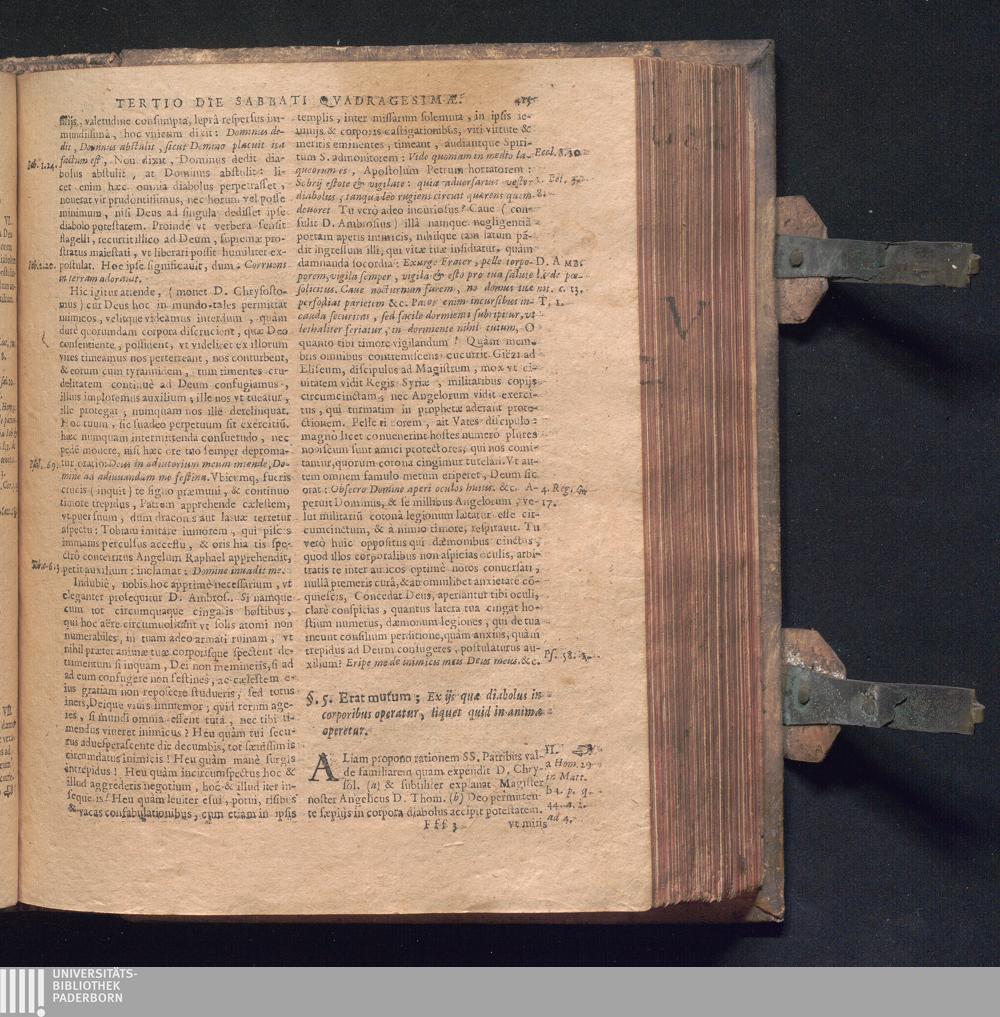 TERTIO DIE SABBATI QVADRAGESIMÆ. 415
filijs, valetudine consumpta, leprâ respersus im-
mundissimâ, hoc vnicum dixit: Dominus de-
dit, Dominus abstulit, sicut Domino placuit ita
factum est, Non dixit, Dominus dedit dia-
bolus abstulit, at Dominus abstulit: li-
cet enim hæc omnia diabolus perpetrasset,
nouerat vir prudentissimus, nec horum vel posse
minimum, nisi Deus ad singula dedisset ipse
diabolo potestatem. Proinde vt verbera sensit
flagelli, recurrit illico ad Deum, supremæ pro-
stratus maiestati, vt liberari possit humiliter ex-
postulat. Hoc ipse significauit, dum: Corruens
in terram adorauit.
Hic igitur attende, (monet D. Chrysosto-
mus) cur Deus hoc in mundo tales permittat
inimicos, velitque videamus interdum, quàm
durè quorumdam corpora discrucient, quæ Deo
consentiente, possident, vt videlicet ex illorum
vires timeamus nos perterreant, nos conturbent,
& eorum cum tyrannidem, tum timentes cru-
delitatem continuè ad Deum confugiamus,
illius imploremus auxilium; ille nos vt tueatur,
ille protegat, numquam nos ille derelinquat.
Hoc tuum, sic suadeo perpetuum sit exercitiũ.
hæc numquam intermittenda consuetudo, nec
pedẽ mouere, nisi hæc ore tuo semper deproma-
tur oratio: Deus in adiutorium meum intende, Do-
mine ad adiuuandum me festina. Vbicumq, fueris
crucis (inquit) te signo præmuni, & continuo
timore trepidus, Patrem apprehende cælestem,
vt puer suum, dum draconis aut laruæ terretur
aspectu: Tobiam imitare iuniorem, qui piscis
immanis perculsus accessu, & oris hiantis spe-
ctrô conterritus Angelum Raphael apprehendit,
petit auxilium: inclamat: Domine inuadit me.
Indubiè, nobis hoc apprimè necessarium, vt
eleganter prosequitur D. Ambros. Si namque
cum tot circumquaque cingaris hostibus,
qui hoc aëre circumuolitant vt solis atomi non
numerabiles, in tuam adeo armati ruinam, vt
nihil præter animæ tuæ corporisque spectent de-
trimentum si inquam, Dei non memineris, si ad
ad eum confugere non festines, ac cælestem e-
ius gratiam non reposcere studueris, sed totus
iners, Deique viuis immemor; quid rerum age-
res, si mundi omnia essent tuta, nec tibi ti-
mendus viueret inimicus? Heu quàm tui secu-
rus aduesperascente die decumbis, tot sæuissimis
circumdatus inimicis! Heu quàm manè surgis
intrepidus! Heu quàm incircumspectus hoc &
illud aggrederis negotium, hoc & illud iter in-
sequeris! Heu quàm leuiter esui, potui, risibus
& vacas confabulationibus, cum etiam in ipsis
Iob. 1. 24.
Iob. 1. 20.
Psal. 69.
Tob. c. 6. 3.
templis, inter missarum solemnia, in ipsis ie-
iunijs & corporis castigationibus, viri virtute &
meritis eminentes, timeant, audiantque Spiri-
tum S. admonitorem: Vide quoniam in medio la-
queorum es, Apostolum Petrum hortatorem:
Sobrij estote & vigilate: quia aduersarius vester
diabolus, tanquã leo rugiens circuit quærens quem
deuoret. Tu verò adeo incuriosus? Caue (con-
sulit D. Ambrosius) illâ namque negligentiâ
portam aperis inimicis, nihilque tam latum pã-
dit ingressum illi; qui vitæ tuæ insidiatur, quàm
damnanda socordia: Exurge Frater, pelle torpo-
porem, vigila semper, vigila & esto pro tua salute
solicitus. Caue nocturnum furem, ne domus tuæ
persodiat parietem &c. Patet enim incursibus in-
cauda securitas, sed facile dormienti subripitur, vt
lethaliter feriatur, in dormiente nihil tutum, O
quanto tibi timore vigilandum! Quàm mem-
bris omnibus contremiscens cucurrit Giëzi ad
Eliseum, discipulus ad Magistrum, mox vt ci-
uitatem vidit Regis Syriæ, militaribus copijs
circumcinctam; nec Angelorum vidit exerci-
tus, qui turmatim in prophetæ aderant prote-
ctionem. Pelle timorem, ait Vates discipulo:
magnò licet conuenerint hostes numerô plures
nobiscum sunt amici protectores; qui nos comi-
tantur, quorum corona cingimur tutelari. Vt au-
tem omnem famulo metum eriperet, Deum sic
orat: Obsecro Domine aperi oculos huius. &c. A-
peruit Dominus, & se millibus Angelorum, ve-
lut militariũ coronâ legionum lætatur esse cir-
cumcinctum, & à nimio timore, respirauit. Tu
verò huic oppositus qui dæmonibus cinctus,
quod illos corporalibus non aspicias oculis, arbi-
traris te inter amicos optimè notos conuersari,
nullâ ptemeris curâ, & ab omni liber anxietate cõ-
quiescis, Concedat Deus, aperiantur tibi oculi,
clarè conspicias, quantus latera tua cingat ho-
stium numerus, dæmonum legiones, qui de tua
ineunt consilium perditione, quàm anxius, quàm
trepidus ad Deum confugeres, postulaturus au-
xilium! Eripe me de inimicis meis Deus meus. &c.
Eccl. 8. 20
1. Pet. 5.
8.
D. AMB.
l. de pœ-
nit. c. 13.
T. 1.
4. Reg. 6.
17.
Ps. 58. 1.
§. 5. Erat mutum; Ex ijs quæ diabolus in
corporibus operatur, liquet quid in anima
operetur.
ALiam propono rationem SS, Patribus val-
de familiarem quam expendit D. Chry-
sost. (a) & subtiliter explanat Magister
noster Angelicus D. Thom. (b) Deo permitten-
te sæpius in corpora diabolus accipit potestatem.
II.
a Hom. 29
in Matt.
b 1. p. q.
44. a. 1.
ad 4.
Fff 3 vt miris
UNIVERSITÄTS-
BIBLIOTHEK
PADERBORN